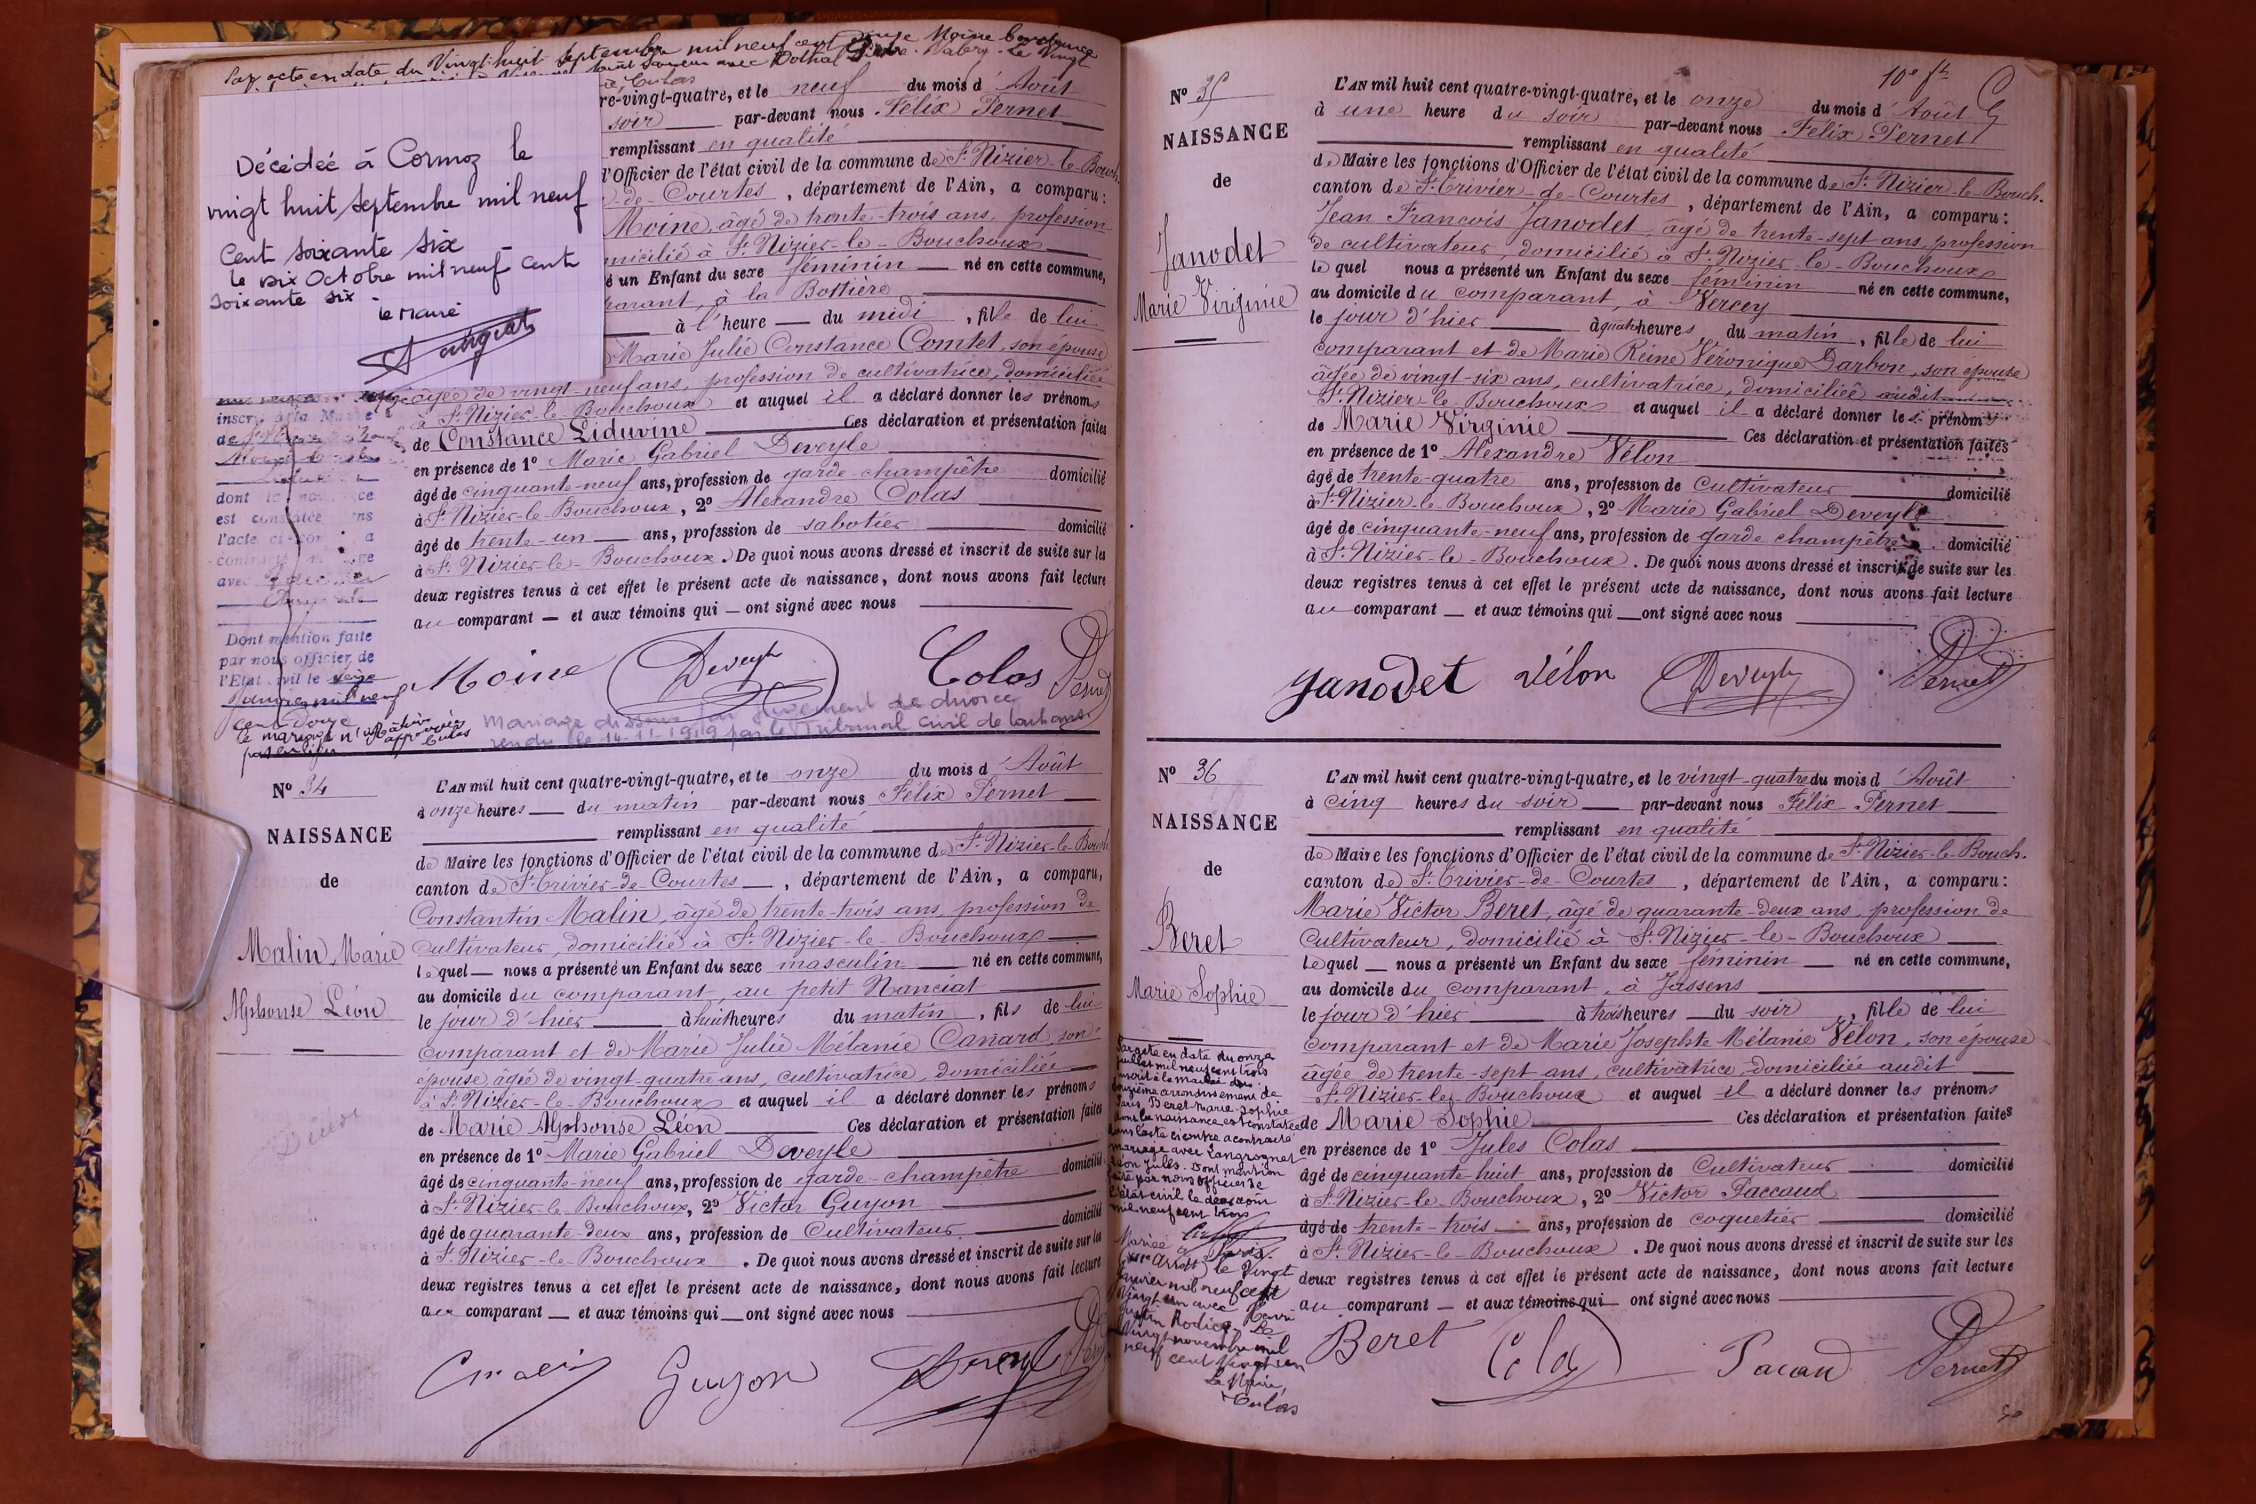 Par acte en date du Vingt huit Septembre mil neuf cent Moine Constance
avec Dothal Valery Le Vingt
Décédée à Cormoz le
vingt huit septembre mil neuf
cent soixante six
le six Octobre mil neuf cent
soixante six.
le Maire
re-vingt-quatre, et le neuf du mois d'Août
soir par-devant nous Félix Pernet
remplissant en qualité
l'Officier de l'état civil de la commune de St Nizier-le-Bouch.
de-Courtes, département de l'Ain, a comparu:
Moine, âgé de trente-trois ans, profession
domicilié à St Nizier-le-Bouchoux
é un Enfant du sexe féminin né en cette commune,
comparant, à la Bottière
à l'heure du midi, fille de lui
Marie Julie Constance Comtet, son épouse
âgée de vingt-neuf ans, profession de cultivatrice, domiciliée
à St Nizier-le-Bouchoux et auquel il a déclaré donner les prénoms
de Constance Liduvine Ces déclaration et présentation faites
en présence de 1º Marie Gabriel Deveyle
âgé de cinquante-neuf ans, profession de garde-champêtre domicilié
à St Nizier-le-Bouchoux, 2º Alexandre Colas
âgé de trente-un ans, profession de sabotier domicilié
à St Nizier-le-Bouchoux. De quoi nous avons dressé et inscrit de suite sur les
deux registres tenus à cet effet le présent acte de naissance, dont nous avons fait lecture
au comparant et aux témoins qui ont signé avec nous
Moine Deveyle Colas Pernet
dont la
est constatée
l'acte ci-contre a
avec
Dont mention faite
par nous officier de
l'Etat civil le seize
Janvier mil neuf
cent douze
le mariage n'
Colas
Mariage dissous par jugement de divorce
rendu le 14-11-1919 par le Tribunal Civil de Louhans
Nº 34
NAISSANCE
de
Malin Marie
Alphonse Léon
L'AN mil huit cent quatre-vingt-quatre, et le onze du mois d'Août
à onze heures du matin par-devant nous Félix Pernet
remplissant en qualité
de Maire les fonctions d'Officier de l'état civil de la commune de St Nizier-le-Bouch
canton de St Trivier-de-Courtes, département de l'Ain, a comparu,
Constantin Malin, âgé de trente-trois ans, profession de
cultivateur, domicilié à St Nizier-le-Bouchoux
lequel nous a présenté un Enfant du sexe masculin né en cette commune,
au domicile du comparant, au petit Nanciat
le jour d'hier à huit heures du matin, fils de lui
comparant et de Marie Julie Mélanie Canard, son
épouse âgée de vingt-quatre ans, cultivatrice, domiciliée
à St Nizier-le-Bouchoux et auquel il a déclaré donner les prénoms
de Marie Alphonse Léon Ces déclaration et présentation faites
en présence de 1º Marie Gabriel Deveyle
âgé de cinquante-neuf ans, profession de garde-champêtre domicilié
à St Nizier-le-Bouchoux, 2º Victor Guyon
âgé de quarante-deux ans, profession de Cultivateur domicilié
à St Nizier-le-Bouchoux. De quoi nous avons dressé et inscrit de suite sur les
deux registres tenus à cet effet le présent acte de naissance, dont nous avons fait lecture
au comparant et aux témoins qui ont signé avec nous
Cmalin Guyon Deveyle
10e ft
Nº 35
NAISSANCE
de
Janodet
Marie Virginie
L'AN mil huit cent quatre-vingt-quatre, et le onze du mois d'Août
à une heure du soir par-devant nous Félix Pernet
remplissant en qualité
de Maire les fonctions d'Officier de l'état civil de la commune de St Nizier-le-Bouch.
canton de St Trivier-de-Courtes, département de l'Ain, a comparu:
Jean François Janodet, âgé de trente-sept ans, profession
de cultivateur, domicilié à St Nizier-le-Bouchoux
lequel nous a présenté un Enfant du sexe féminin né en cette commune,
au domicile du comparant, à Vercey
le jour d'hier à quatre heures du matin, fille de lui
comparant et de Marie Reine Véronique Darbon, son épouse
âgée de vingt-six ans, cultivatrice, domiciliée audit
St Nizier-le-Bouchoux et auquel il a déclaré donner les prénoms
de Marie Virginie Ces déclaration et présentation faites
en présence de 1º Alexandre Vélon
âgé de trente-quatre ans, profession de Cultivateur domicilié
à St Nizier-le-Bouchoux, 2º Marie Gabriel Deveyle
âgé de cinquante-neuf ans, profession de garde champêtre domicilié
à St Nizier-le-Bouchoux. De quoi nous avons dressé et inscrit de suite sur les
deux registres tenus à cet effet le présent acte de naissance, dont nous avons fait lecture
au comparant et aux témoins qui ont signé avec nous
Janodet Vélon Deveyle Pernet
Nº 36
NAISSANCE
de
Beret
Marie Sophie
L'AN mil huit cent quatre-vingt-quatre, et le vingt-quatre du mois d'Août
à cinq heures du soir par-devant nous Félix Pernet
remplissant en qualité
de Maire les fonctions d'Officier de l'état civil de la commune de St Nizier-le-Bouch.
canton de St Trivier-de-Courtes, département de l'Ain, a comparu:
Marie Victor Beret, âgé de quarante-deux ans, profession de
Cultivateur, domicilié à St Nizier-le-Bouchoux
lequel nous a présenté un Enfant du sexe féminin né en cette commune,
au domicile du comparant, à Jassens
le jour d'hier à trois heures du soir, fille de lui
comparant et de Marie Josephte Mélanie Vélon, son épouse
âgée de trente-sept ans, cultivatrice, domiciliée audit
St Nizier-le-Bouchoux et auquel il a déclaré donner les prénoms
de Marie Sophie Ces déclaration et présentation faites
en présence de 1º Jules Colas
âgé de cinquante-huit ans, profession de Cultivateur domicilié
à St Nizier-le-Bouchoux, 2º Victor Paccaud
âgé de trente-trois ans, profession de coquetier domicilié
à St Nizier-le-Bouchoux. De quoi nous avons dressé et inscrit de suite sur les
deux registres tenus à cet effet le présent acte de naissance, dont nous avons fait lecture
au comparant et aux témoins qui ont signé avec nous
Beret Colas Pacaud Pernet
Par acte en date du onze
juillet mil neuf cent trois
inscrit à la mairie du
douzième arrondissement de
Paris Beret Marie Sophie
dont la naissance est constatée
dans l'acte ci contre a contracté
mariage avec Langrognet
Léon Jules. Dont mention
faite par nous officier de
l'état civil le deux août
mil neuf cent trois
Mariée à Paris
arrdt le Vingt
Janvier mil neuf cent
Vingt-un avec Henri
Rodier. Le
Vingt novembre mil
neuf cent vingt un
Le Maire,
Colas